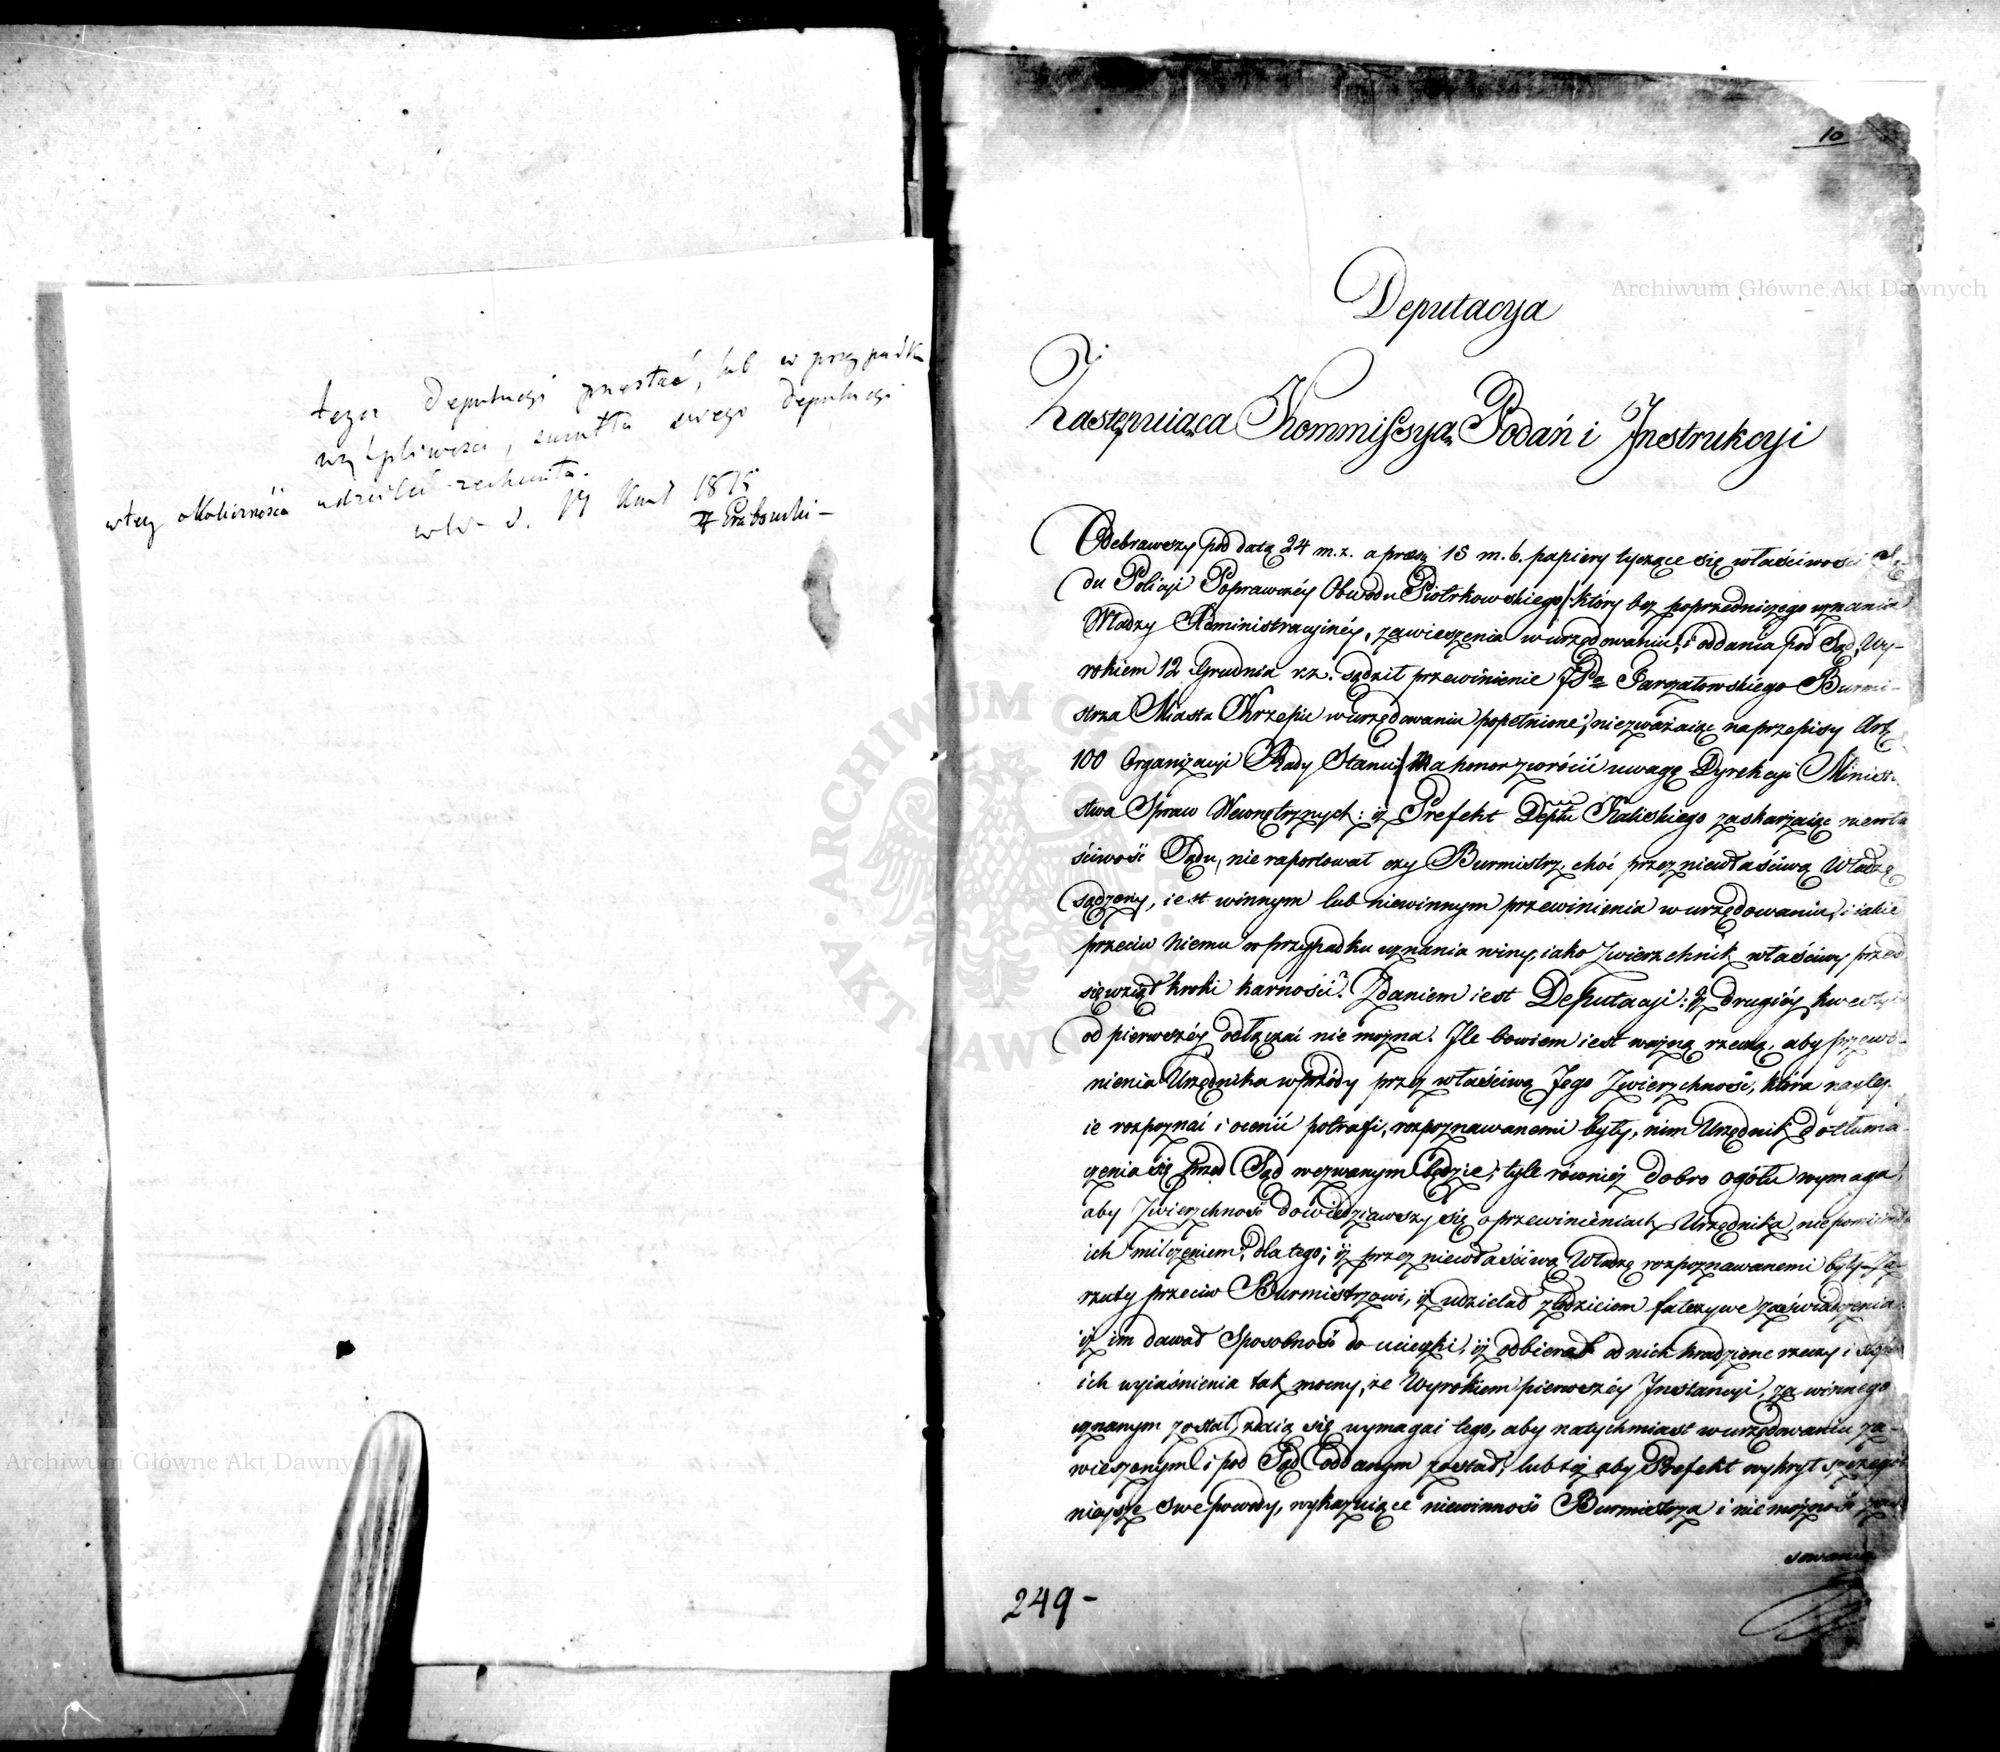 tegoż Deputacyi przesłać, lub w przypadku
wątpliwości, swego Deputacyi
w tey okoliczności udzielić
d. 17 1815
Grabowski
10
Deputacya
Zastępuiąca Kommissyą Podań i Instrukcyi
Odebrawszy pod datą 24 m. z. a praes. 15 m. b. papiery tyczące się właściwości Są-
du Policyi Poprawczéy Obwodu Piotrkowskiego /: który bez poprzedniczego uznania
Władzy Administracyinéy, zawieszenia w urzędowaniu, i oddania pod Sąd, Wy-
rokiem 12 Grudnia r.z. sądził przewinienie JPa Burmi-
strza Miasta Krzepic w urzędowaniu popełnione, niezważaiąc na przepisy Art.
100 Organizacyi Rady Stanu :/ ma honor zwrócić uwagę Dyrekcyi Minist-
stwa Spraw Wewnętrznych: iż Prefekt Deptu Kaliskiego zaskarżaiąc niewła
ściwość Sądu, nie raportował czy Burmistrz, choć przez niewłaściwą Władzę
sądzony, iest winnym lub niewinnym przewinienia w urzędowaniu, i iakie
przeciw niemu w przypadku uznania winy, iako Zwierzchnik właściwy przed
się wziął kroki karności? Zdaniem iest Deputacyi: iż drugiéy kwestyi
od pierwszéy odłączać nie można. Ile bowiem iest ważną rzeczą, aby przewi-
nienia Urzędnika wprzódy przez właściwą Jego Zwierzchność, która naylep-
ie rozpoznać i ocenić potrafi, rozpoznawanemi były, nim Urzędnik do tłuma-
czenia się przed Sąd wezwanym będzie; tyle równiéż dobro ogółu wymaga,
aby Zwierzchność dowiedziawszy się o przewinieniach Urzędnika, nie pomijała
ich milczeniem, dla tego; iż przez niewłaściwą Władzę rozpoznawanemi były. Za-
rzuty przeciw Burmistrzowi, iż udzielał złodzieiom fałszywe zaświadczenia,
iż im dawał sposobność do ucieczki, iż odbierał od nich kradzione rzeczy i
ich wyiaśnienia tak mocny, że Wyrokiem pierwszéy Instancyi, za winnego
uznanym został, zdaią się wymagać tego, aby natychmiast w urzędowaniu za-
wieszonym i pod Sąd oddanym został, lub téż aby Prefekt wykrył szczegól-
nieysze swe powody, wykazuiące niewinność Burmistrza i niemożność
sowania
249-
Archiwum Główne Akt Dawnych
Archiwum Główne Akt Dawnych